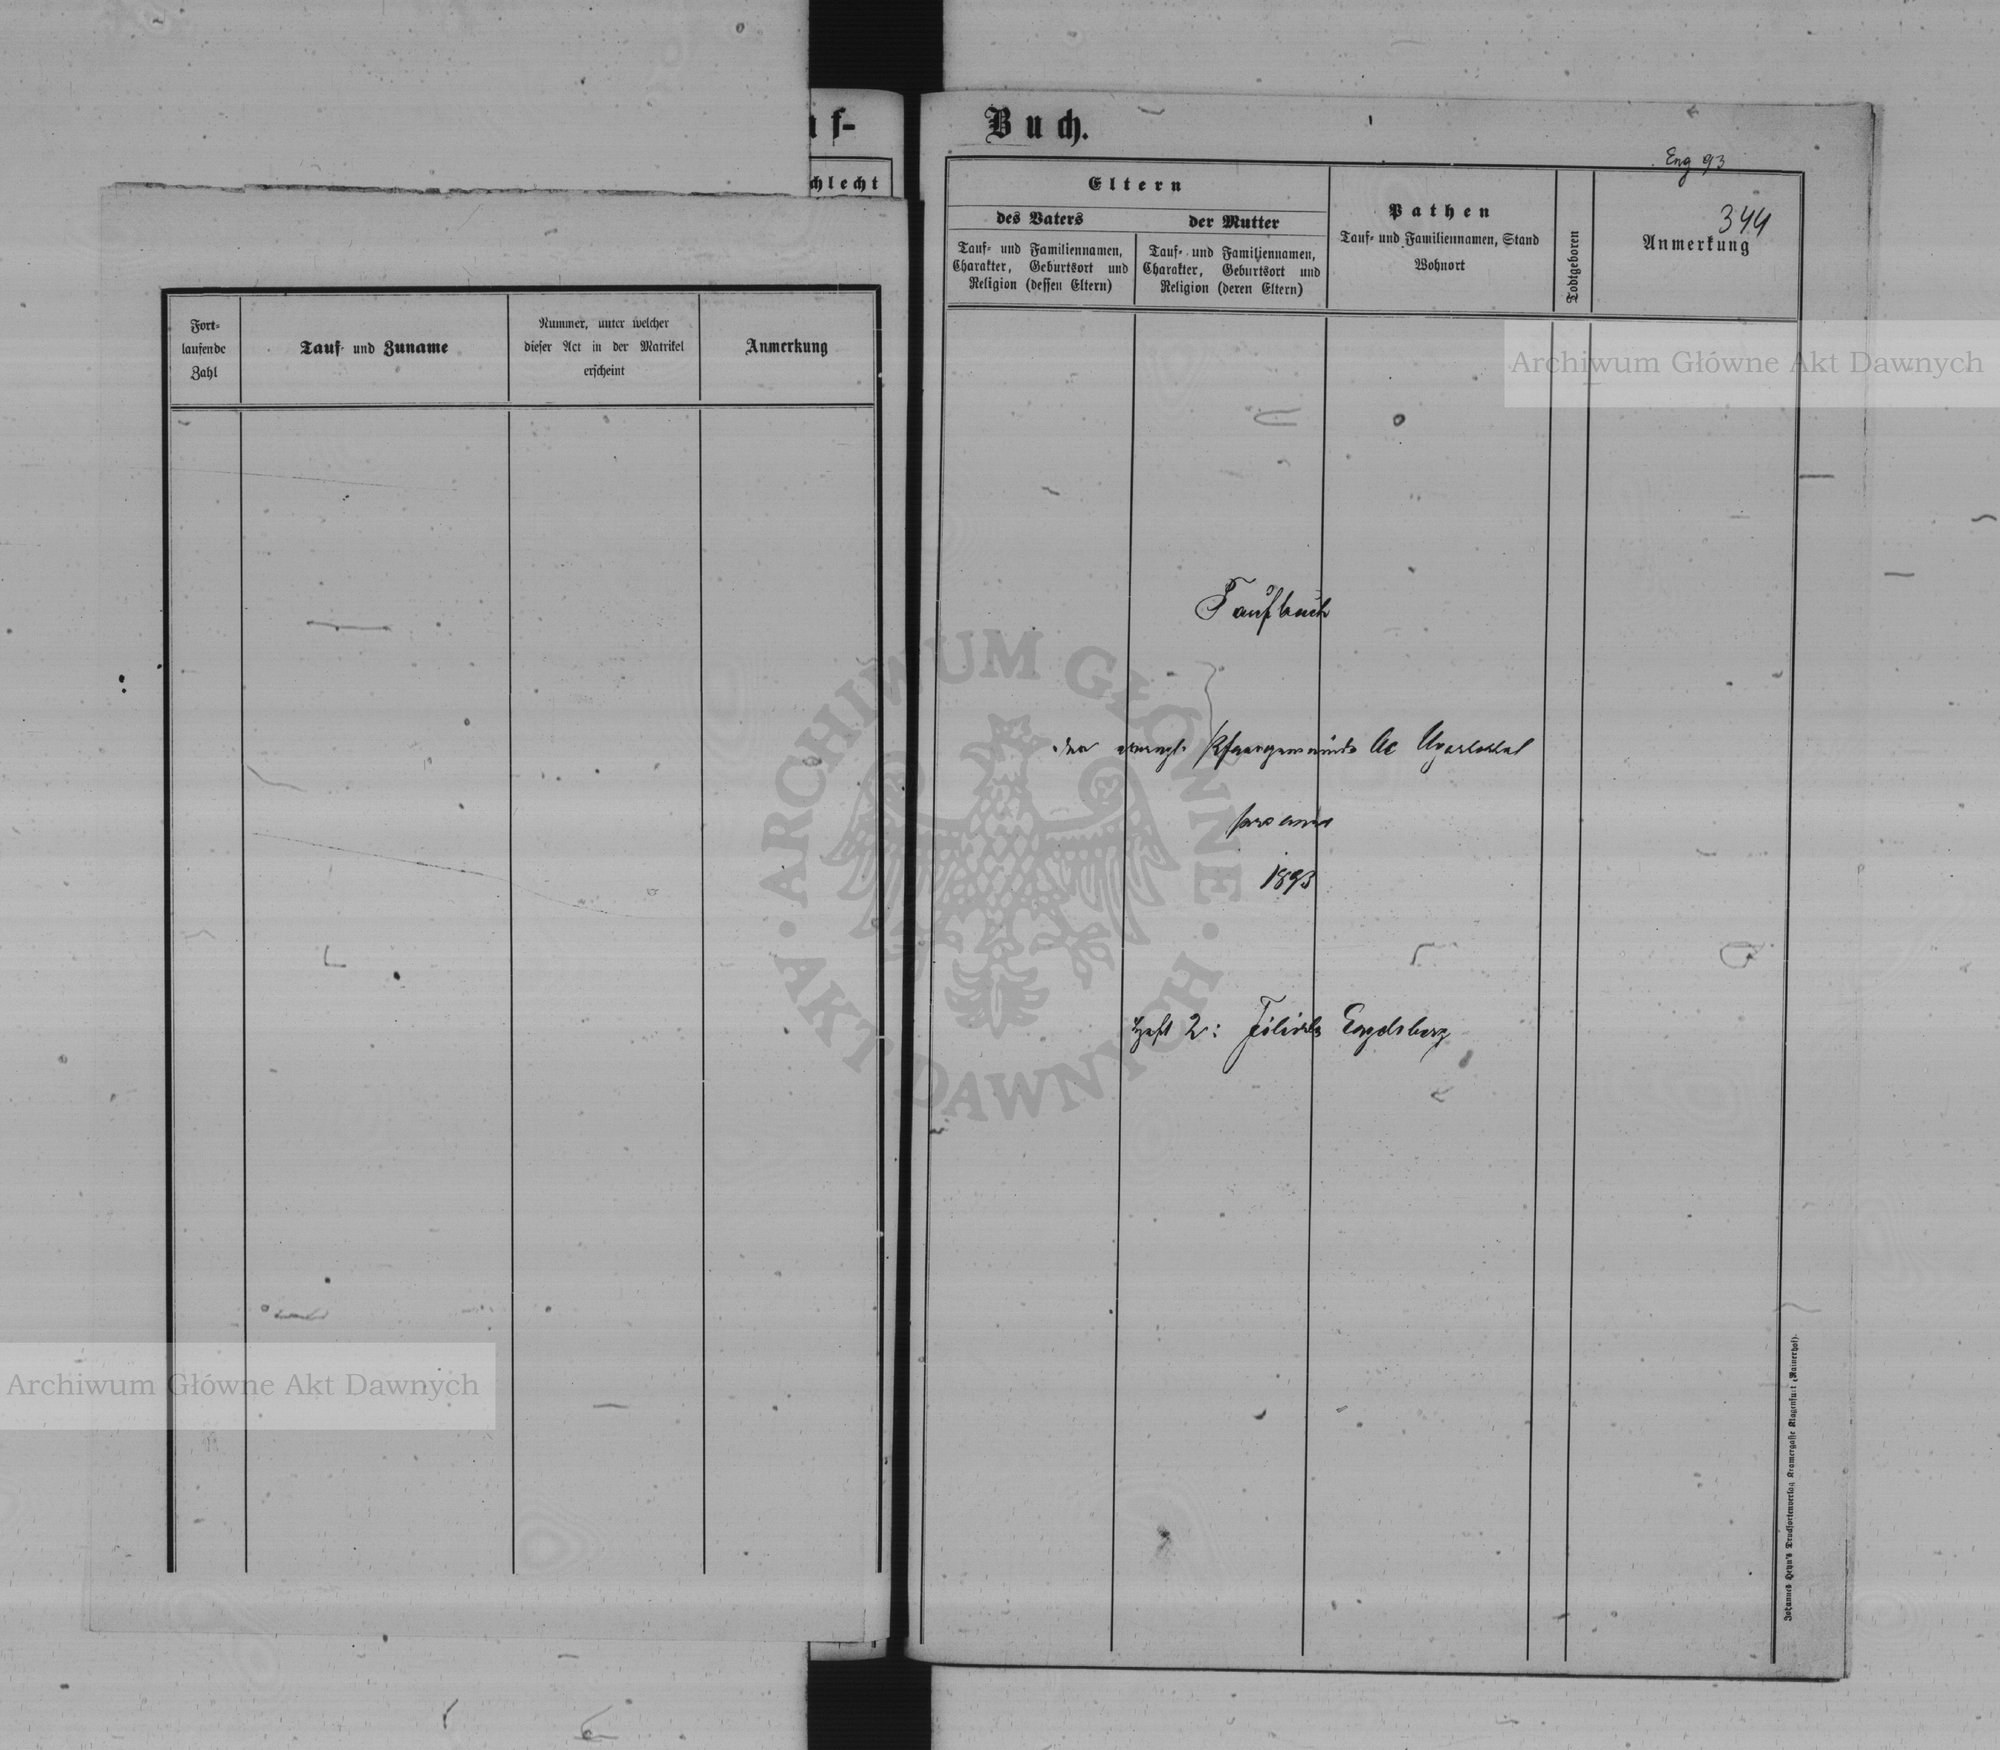 f-
chlecht
Fort-
laufende
Zahl
Tauf- und Zuname
Nummer, unter welcher
dieser Act in der Matrikel
erscheint
Anmerkung
Buch.
Eng 93
344
Eltern
des Vaters
der Mutter
Tauf- und Familiennamen,
Charakter, Geburtsort und
Religion (dessen Eltern)
Tauf- und Familiennamen,
Charakter, Geburtsort und
Religion (deren Eltern)
Pathen
Tauf- und Familiennamen, Stand
Wohnort
Todtgeboren
Anmerkung
Taufbuch
der evangl. Pfarrgemeinde AC Ugartsthal
pro anno
1893
Heft 2: Filiale Engelsberg
Johannes Heyn's Drucksortenverlag Kramergasse Klagenfurt (Rainerhof).
Archiwum Główne Akt Dawnych
ARCHIWUM GŁÓWNE · AKT DAWNYCH ·
Archiwum Główne Akt Dawnych